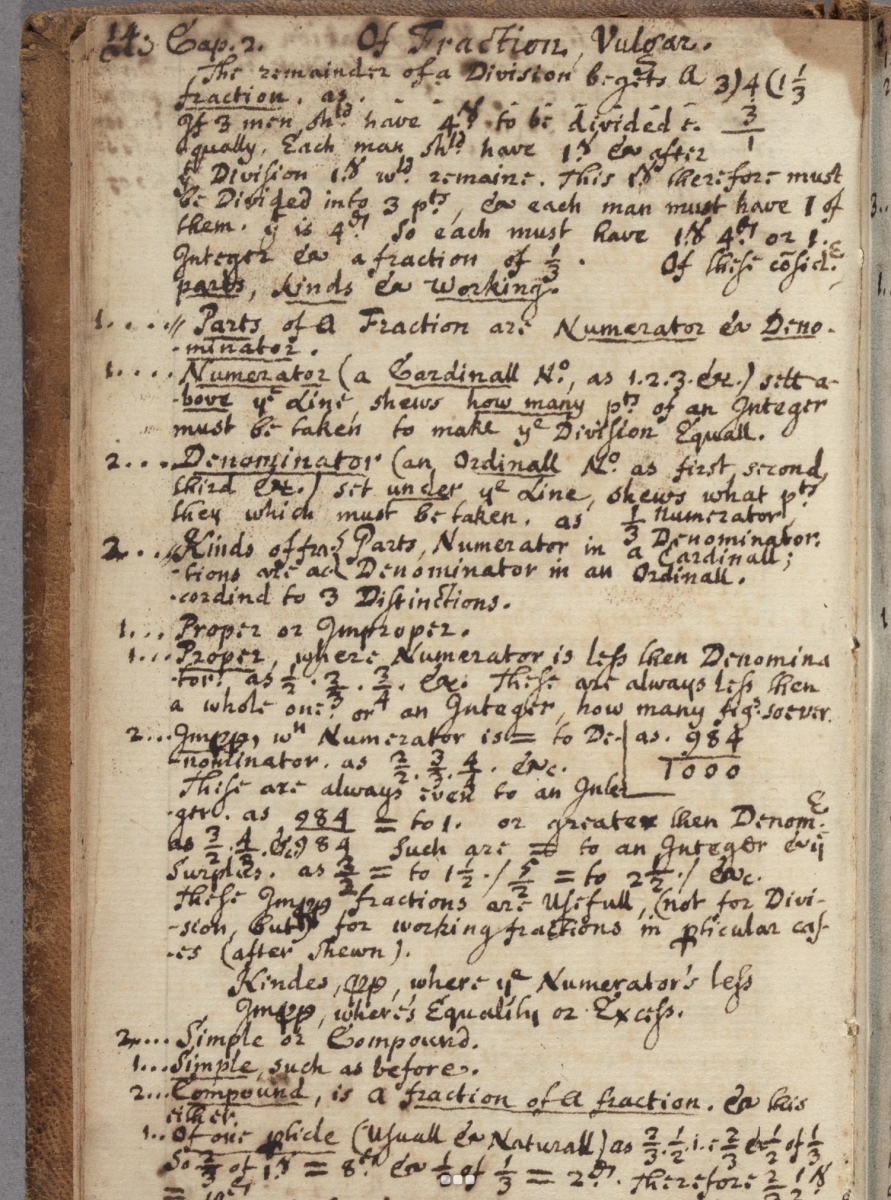 14: Cap. 2. Of Fraction, Vulgar.
The remainder of a Division begets a 3) 4 (1 1/3
fraction. as. 3
If 3 men shld have 4s to be divided 1
equally, Each man shld have 1s & after
ye Division 1s wld remaine. This 1s therefore must
be Divided into 3 pts, & each man must have 1 of
them. yt is 4d. So each must have 1s 4d or 1.
Integer & a fraction of 1/3. Of these cōsidr.
parts, kinds & Working.
1.... // Parts of a Fraction are Numerator & Deno-
-minator.
1.... Numerator (a Cardinall No, as 1.2.3. &c.) sett a-
-bove ye Line, shews how many pts of an Integer
must be taken to make ye Division Equall.
2... Denominator (an Ordinall No as first, second,
third &c.) set under ye Line, shews what pts
they which must be taken. as 1/3 Numerator, Denominator.
2... // Kinds of frac- Parts, Numerator in a Cardinall;
-tions are ac- Denominator in an Ordinall.
-cordind to 3 Distinctions.
1... Proper or Improper.
1... Proper, where Numerator is less then Denomina
-tor: as 1/2. 2/3. 3/4. &c. These are always less then
a whole one, or an Integer, how many figs. soever.
2... Impp, wn Numerator is = to De- as. 984
-nominator. as 2/2. 3/3. 4/4. &c. 1000
These are always even to an Inte-
-ger. as 984/984 = to 1. or greater then Denomr.
as 3/2. 4/3. &c. Such are = to an Integer & ye
Surplus. as 3/2 = to 1 1/2 ./ 5/2 = to 2 1/2 ./ &c.
These Impp fractions are Usefull, (not for Divi-
-sion, but) for working fractions in pticular cas-
-es (after shewn).
Kindes, pp, where ye Numerator's less
Impp, where's Equality or Excess.
2.... Simple or Compound.
1... Simple, such as before.
2... Compound, is a fraction of a fraction. & this
either.
1.. Of one pticle (Usuall & Naturall) as 2/3. 1/2 i.e 2/3 & 1/2 of 1/3
So 2/3 of 1s = 8d & 1/2 of 1/3 = 2d. Therefore